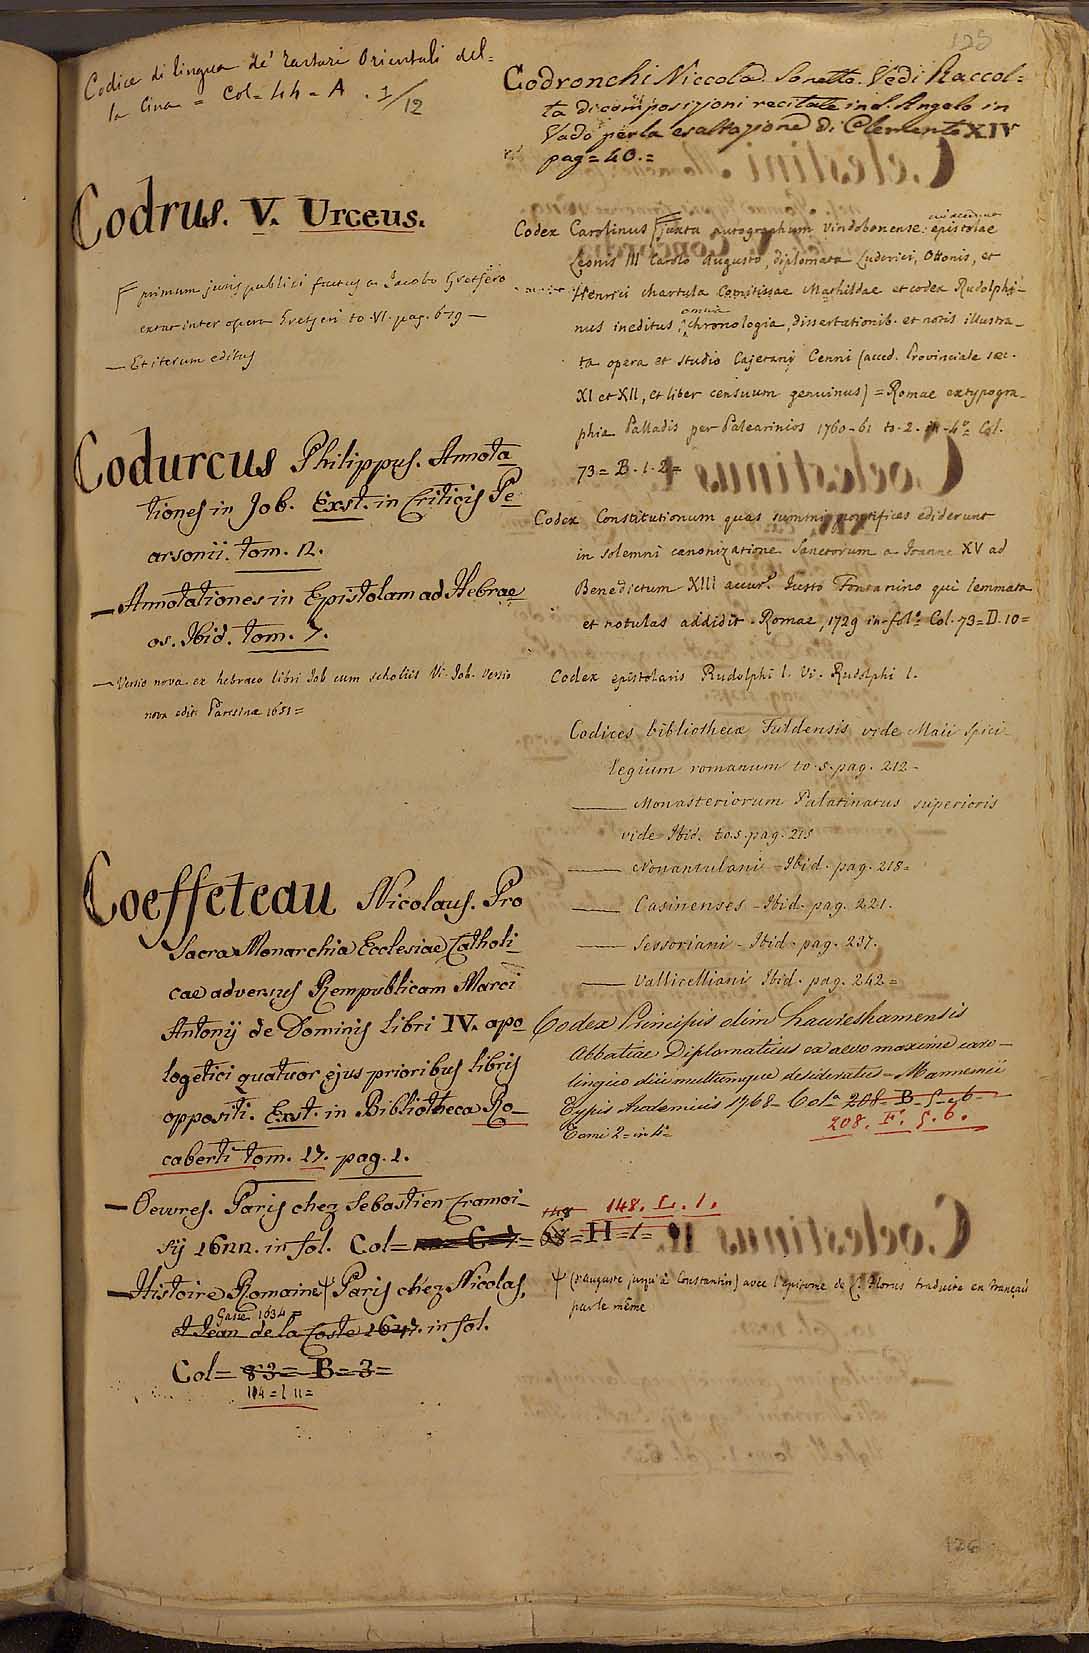 125
Codice di lingua de' Tartari Orientali del=
la Cina = Col= 44 = A . 1/12
Codrus. V. Urceus.
primum juris publici factus a Jacobo Gretsero
extat inter opera Gretseri to. VI. pag. 619 —
— Et iterum editus
Codurcus Philippus. Annota
tiones in Job. Exst. in Criticis Pe
arsonii. tom. 12.
— Annotationes in Epistolam ad Hebrae
os. Ibid. tom. 7.
— Versio nova ex hebraeo libri Job cum scholiis Vi. Job. versio
nova edit. Parisinae 1651 =
Coeffeteau Nicolaus. Pro
Sacra Monarchia Ecclesiae Catholi_
cae adversus Rempublicam Marci
Antonij de Dominis libri IV. apo
logetici quatuor ejus prioribus libris
oppositi. Exst. in Bibliotheca Ro_
caberti tom. 17. pag. 1.
— Oeuvres. Paris chez Sebastien Cramoi_
sÿ 1622. in fol. Col= 68 = H = 1 =
148 148. L. 1.
— Histoire Romaine Paris chez Nicolas,
Gasse 1634 =
et Jean de la Coste 1647. in fol.
Col= 83 = B = 3 =
104 = l 11 =
Codronchi Niccola. Sonetto. Vedi Raccol=
ta di composizioni recitate in S. Angelo in
Vado per la esaltazione di Clemente XIV
pag = 40. =
Codex Carolinus juxta autographum vindobonense: epistolae
Leonis III Carolo Augusto, diplomata Ludovici, Ottonis, et
Henrici chartula Comitissae Mathildae et codex Rudolphi_
nus ineditus; omnia chronologia, dissertationib. et notis illustra_
ta opera et studio Cajetani Cenni (acced. Provinciale saec.
XI et XII, et liber censuum genuinus) = Romae ex typogra_
phia Palladis per Palearinios 1760-61 to. 2. in-4º= Col.
73 = B. 1. 2 =
Codex Constitutionum quas summi pontifices ediderunt
in solemni canonizatione Sanctorum a Joanne XV ad
Benedictum XIII accur.e Justo Fontanino qui lemmata
et notulas addidit. Romae, 1729 in-folº Col. 73 = D. 10 =
Codex epistolaris Rudolphi I. Vi. Rudolphi I.
Codices bibliothecae Fuldensis vide Maii Spici_
legium romanum to. 5. pag. 212 -
—— Monasteriorum Palatinatus superioris
vide Ibid. to. 5. pag. 215
—— Nonantulani - Ibid. pag. 218 =
—— Casinenses - Ibid. pag. 221.
—— Sessoriani - Ibid. pag. 237.
—— Vallicelliani Ibid. pag. 242 =
Codex Principis olim Laureshamensis
Abbatiae Diplomaticus ex aevo maxime caro_
lingico diu multumque desideratus - Manhemii
Typis Academicis 1768 - Col.ª 208 - B - 5 - 6 -
208. F. 5. 6.
Tomi 2 = in 4º
(d'Auguste jusqu'à Constantin) avec l'epitome de L. Florus traduite en français
par le même
126